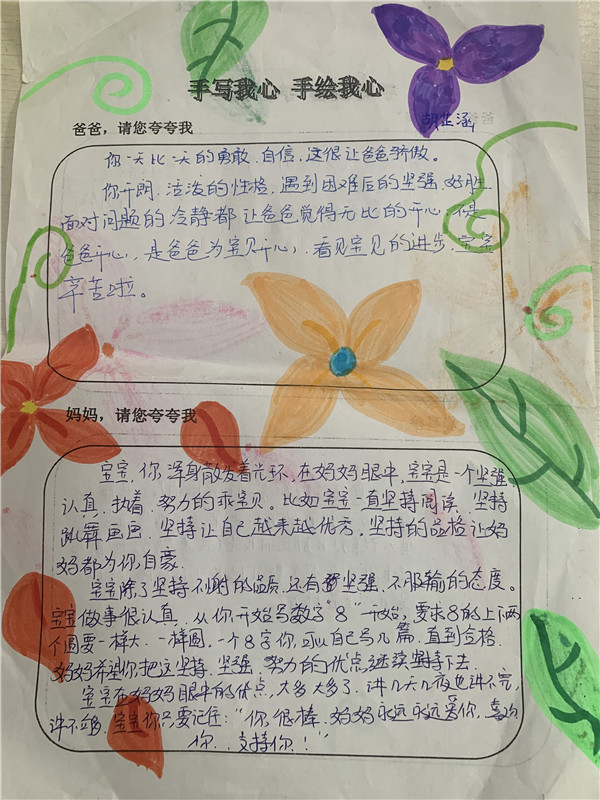 手写我心 手绘我心
爸爸，请您夸夸我
胡芷涵
你一天比一天的勇敢、自信，这很让爸爸骄傲。
你开朗、活泼的性格，遇到困难后的坚强、好胜，
面对问题的冷静都让爸爸觉得无比的开心，不是
爸爸开心，是爸爸为宝贝开心，看见宝贝的进步，宝宝
辛苦啦。
妈妈，请您夸夸我
宝宝，你浑身散发着光环，在妈妈眼中，宝宝是一个坚强、
认真、执着、努力的乖宝贝。比如宝宝一直坚持阅读、坚持
跳舞画画，坚持让自己越来越优秀。坚持的品格让妈
妈都为你自豪。
宝宝除了坚持不谢的品质，还有坚强、不服输的态度。
宝宝做事很认真，从你开始写数字“8”开始，要求8的上下两
个圆要一样大、一样圆，一个8字你可以自己写几篇，直到合格。
妈妈希望你把这坚持、坚强、努力的优点继续坚持下去。
宝宝在妈妈眼中的优点，太多太多了，讲几天几夜也讲不完，
讲不够，宝宝你只要记住：“你很棒，妈妈永远永远爱你，喜欢
你，支持你！”